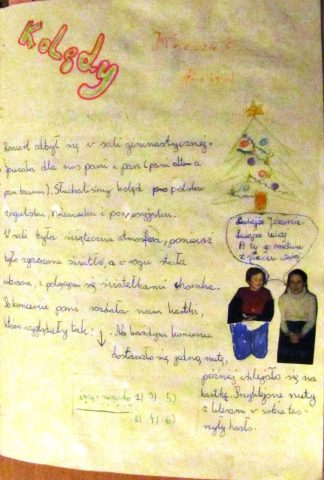 Kolędy
Koncert
Kolęd
koncert odbył się w sali gimnastycznej.
śpiewała dla nas pani i pan (pani
pan). Słuchaliśmy kolęd po polsku
angielsku, niemiecku i po
W sali była świąteczna atmosfera, ponieważ
było zgaszone światło, a w rogu stała
ubrana, z palącymi się światełkami choinka.
Po koncercie pani rozdała nam kartki,
które wyglądały tak: ↓. Na każdym koncercie
dostawało się jedną nutę,
później wklejało się na
kartkę. Przyklejone nuty
z literami w sobie two-
rzyły hasło.
Lulajże Jezuniu
lulajże lulaj
A ty go matulu
z płaczu utulaj
1) 3) 5)
2) 4) 6)